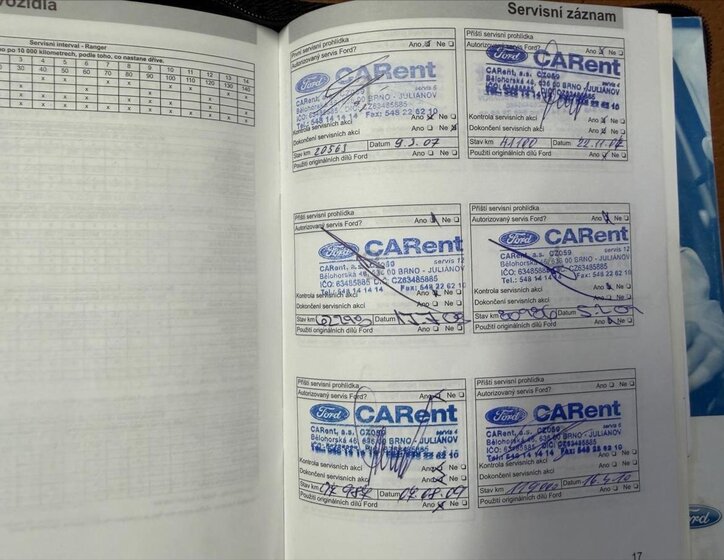 vozidla
Servisní interval - Ranger
no po 10 000 kilometrech, podle toho, co nastane dříve.
3 4 5 6 7 8 9 10 11 12 13 14
30 40 50 60 70 80 90 100 110 120 130 140
Servisní záznam
První servisní prohlídka
Autorizovaný servis Ford? Ano Ne
Ford CARent
CARent, a.s. CZ059 servis 5
Bělohorská 48, 636 00 BRNO - JULIÁNOV
IČO: 63485885, DIČ: CZ63485885
Tel.: 548 14 14 14 Fax: 548 22 62 10
Kontrola servisních akcí Ano Ne
Dokončení servisních akcí Ano Ne
Stav km 20563 Datum 9.3.07
Použití originálních dílů Ford Ano Ne
Příští servisní prohlídka
Autorizovaný servis Ford? Ano Ne
Ford CARent
CARent, a.s. CZ059
Bělohorská 48, 636 00 BRNO - JULIÁNOV
Kontrola servisních akcí Ano Ne
Dokončení servisních akcí Ano Ne
Stav km Datum 22.11.07
Použití originálních dílů Ford Ano Ne
Příští servisní prohlídka
Autorizovaný servis Ford? Ano Ne
Ford CARent
CARent, a.s. CZ059 servis 12
Bělohorská 48, 636 00 BRNO - JULIÁNOV
IČO: 63485885 DIČ: CZ63485885
Tel.: 548 14 14 14 Fax: 548 22 62 10
Kontrola servisních akcí Ano Ne
Dokončení servisních akcí Ano Ne
Stav km Datum
Použití originálních dílů Ford Ano Ne
Příští servisní prohlídka
Autorizovaný servis Ford? Ano Ne
Ford CARent
CARent, a.s. CZ059 servis 12
Bělohorská 48, 636 00 BRNO - JULIÁNOV
IČO: 63485885 DIČ: CZ63485885
Tel.: 548 14 14 14 Fax: 548 22 62 10
Kontrola servisních akcí Ano Ne
Dokončení servisních akcí Ano Ne
Stav km Datum
Použití originálních dílů Ford Ano Ne
Příští servisní prohlídka
Autorizovaný servis Ford? Ano Ne
Ford CARent
CARent, a.s. CZ059 servis 4
Bělohorská 48, 636 00 BRNO - JULIÁNOV
Kontrola servisních akcí Ano Ne
Dokončení servisních akcí Ano Ne
Stav km Datum 07.08.09
Použití originálních dílů Ford Ano Ne
Příští servisní prohlídka
Autorizovaný servis Ford? Ano Ne
Ford CARent
CARent, a.s. CZ059 servis 4
Bělohorská 48, 636 00 BRNO - JULIÁNOV
Kontrola servisních akcí Ano Ne
Dokončení servisních akcí Ano Ne
Stav km Datum 16.4.10
Použití originálních dílů Ford Ano Ne
17
Ford